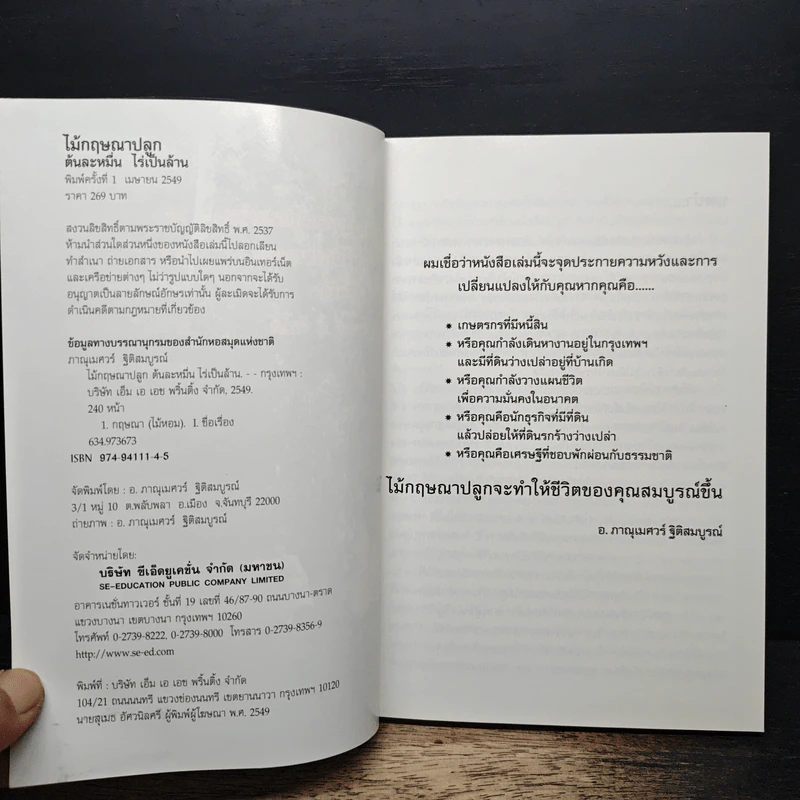 ไม้กฤษณาปลูก
ต้นละหมื่น ไร่เป็นล้าน
พิมพ์ครั้งที่ 1 เมษายน 2549
ราคา 269 บาท
สงวนลิขสิทธิ์ตามพระราชบัญญัติลิขสิทธิ์ พ.ศ. 2537
ห้ามนำส่วนใดส่วนหนึ่งของหนังสือเล่มนี้ไปลอกเลียน
ทำสำเนา ถ่ายเอกสาร หรือนำไปเผยแพร่บนอินเทอร์เน็ต
และเครือข่ายต่างๆ ไม่ว่ารูปแบบใดๆ นอกจากจะได้รับ
อนุญาตเป็นลายลักษณ์อักษรเท่านั้น ผู้ละเมิดจะได้รับการ
ดำเนินคดีตามกฎหมายที่เกี่ยวข้อง
ข้อมูลทางบรรณานุกรมของสำนักหอสมุดแห่งชาติ
ภาณุเมศวร์ ฐิติสมบูรณ์
ไม้กฤษณาปลูก ต้นละหมื่น ไร่เป็นล้าน. - - กรุงเทพฯ :
บริษัท เอ็ม เอ เอช พริ้นติ้ง จำกัด, 2549.
240 หน้า
1. กฤษณา (ไม้หอม). I. ชื่อเรื่อง
634.973673
ISBN 974-94111-4-5
จัดพิมพ์โดย : อ. ภาณุเมศวร์ ฐิติสมบูรณ์
3/1 หมู่ 10 ต.พลับพลา อ.เมือง จ.จันทบุรี 22000
ถ่ายภาพ : อ. ภาณุเมศวร์ ฐิติสมบูรณ์
จัดจำหน่ายโดย:
บริษัท ซีเอ็ดยูเคชั่น จำกัด (มหาชน)
SE-EDUCATION PUBLIC COMPANY LIMITED
อาคารเนชั่นทาวเวอร์ ชั้นที่ 19 เลขที่ 46/87-90 ถนนบางนา-ตราด
แขวงบางนา เขตบางนา กรุงเทพฯ 10260
โทรศัพท์ 0-2739-8222, 0-2739-8000 โทรสาร 0-2739-8356-9
http://www.se-ed.com
พิมพ์ที่ : บริษัท เอ็ม เอ เอช พริ้นติ้ง จำกัด
104/21 ถนนนนทรี แขวงช่องนนทรี เขตยานนาวา กรุงเทพฯ 10120
นายสุเมธ อัศวนิลศรี ผู้พิมพ์ผู้โฆษณา พ.ศ. 2549
ผมเชื่อว่าหนังสือเล่มนี้จะจุดประกายความหวังและการ
เปลี่ยนแปลงให้กับคุณหากคุณคือ......
* เกษตรกรที่มีหนี้สิน
* หรือคุณกำลังเดินหางานอยู่ในกรุงเทพฯ
และมีที่ดินว่างเปล่าอยู่ที่บ้านเกิด
* หรือคุณกำลังวางแผนชีวิต
เพื่อความมั่นคงในอนาคต
* หรือคุณคือนักธุรกิจที่มีที่ดิน
แล้วปล่อยให้ที่ดินรกร้างว่างเปล่า
* หรือคุณคือเศรษฐีที่ชอบพักผ่อนกับธรรมชาติ
ไม้กฤษณาปลูกจะทำให้ชีวิตของคุณสมบูรณ์ขึ้น
อ. ภาณุเมศวร์ ฐิติสมบูรณ์